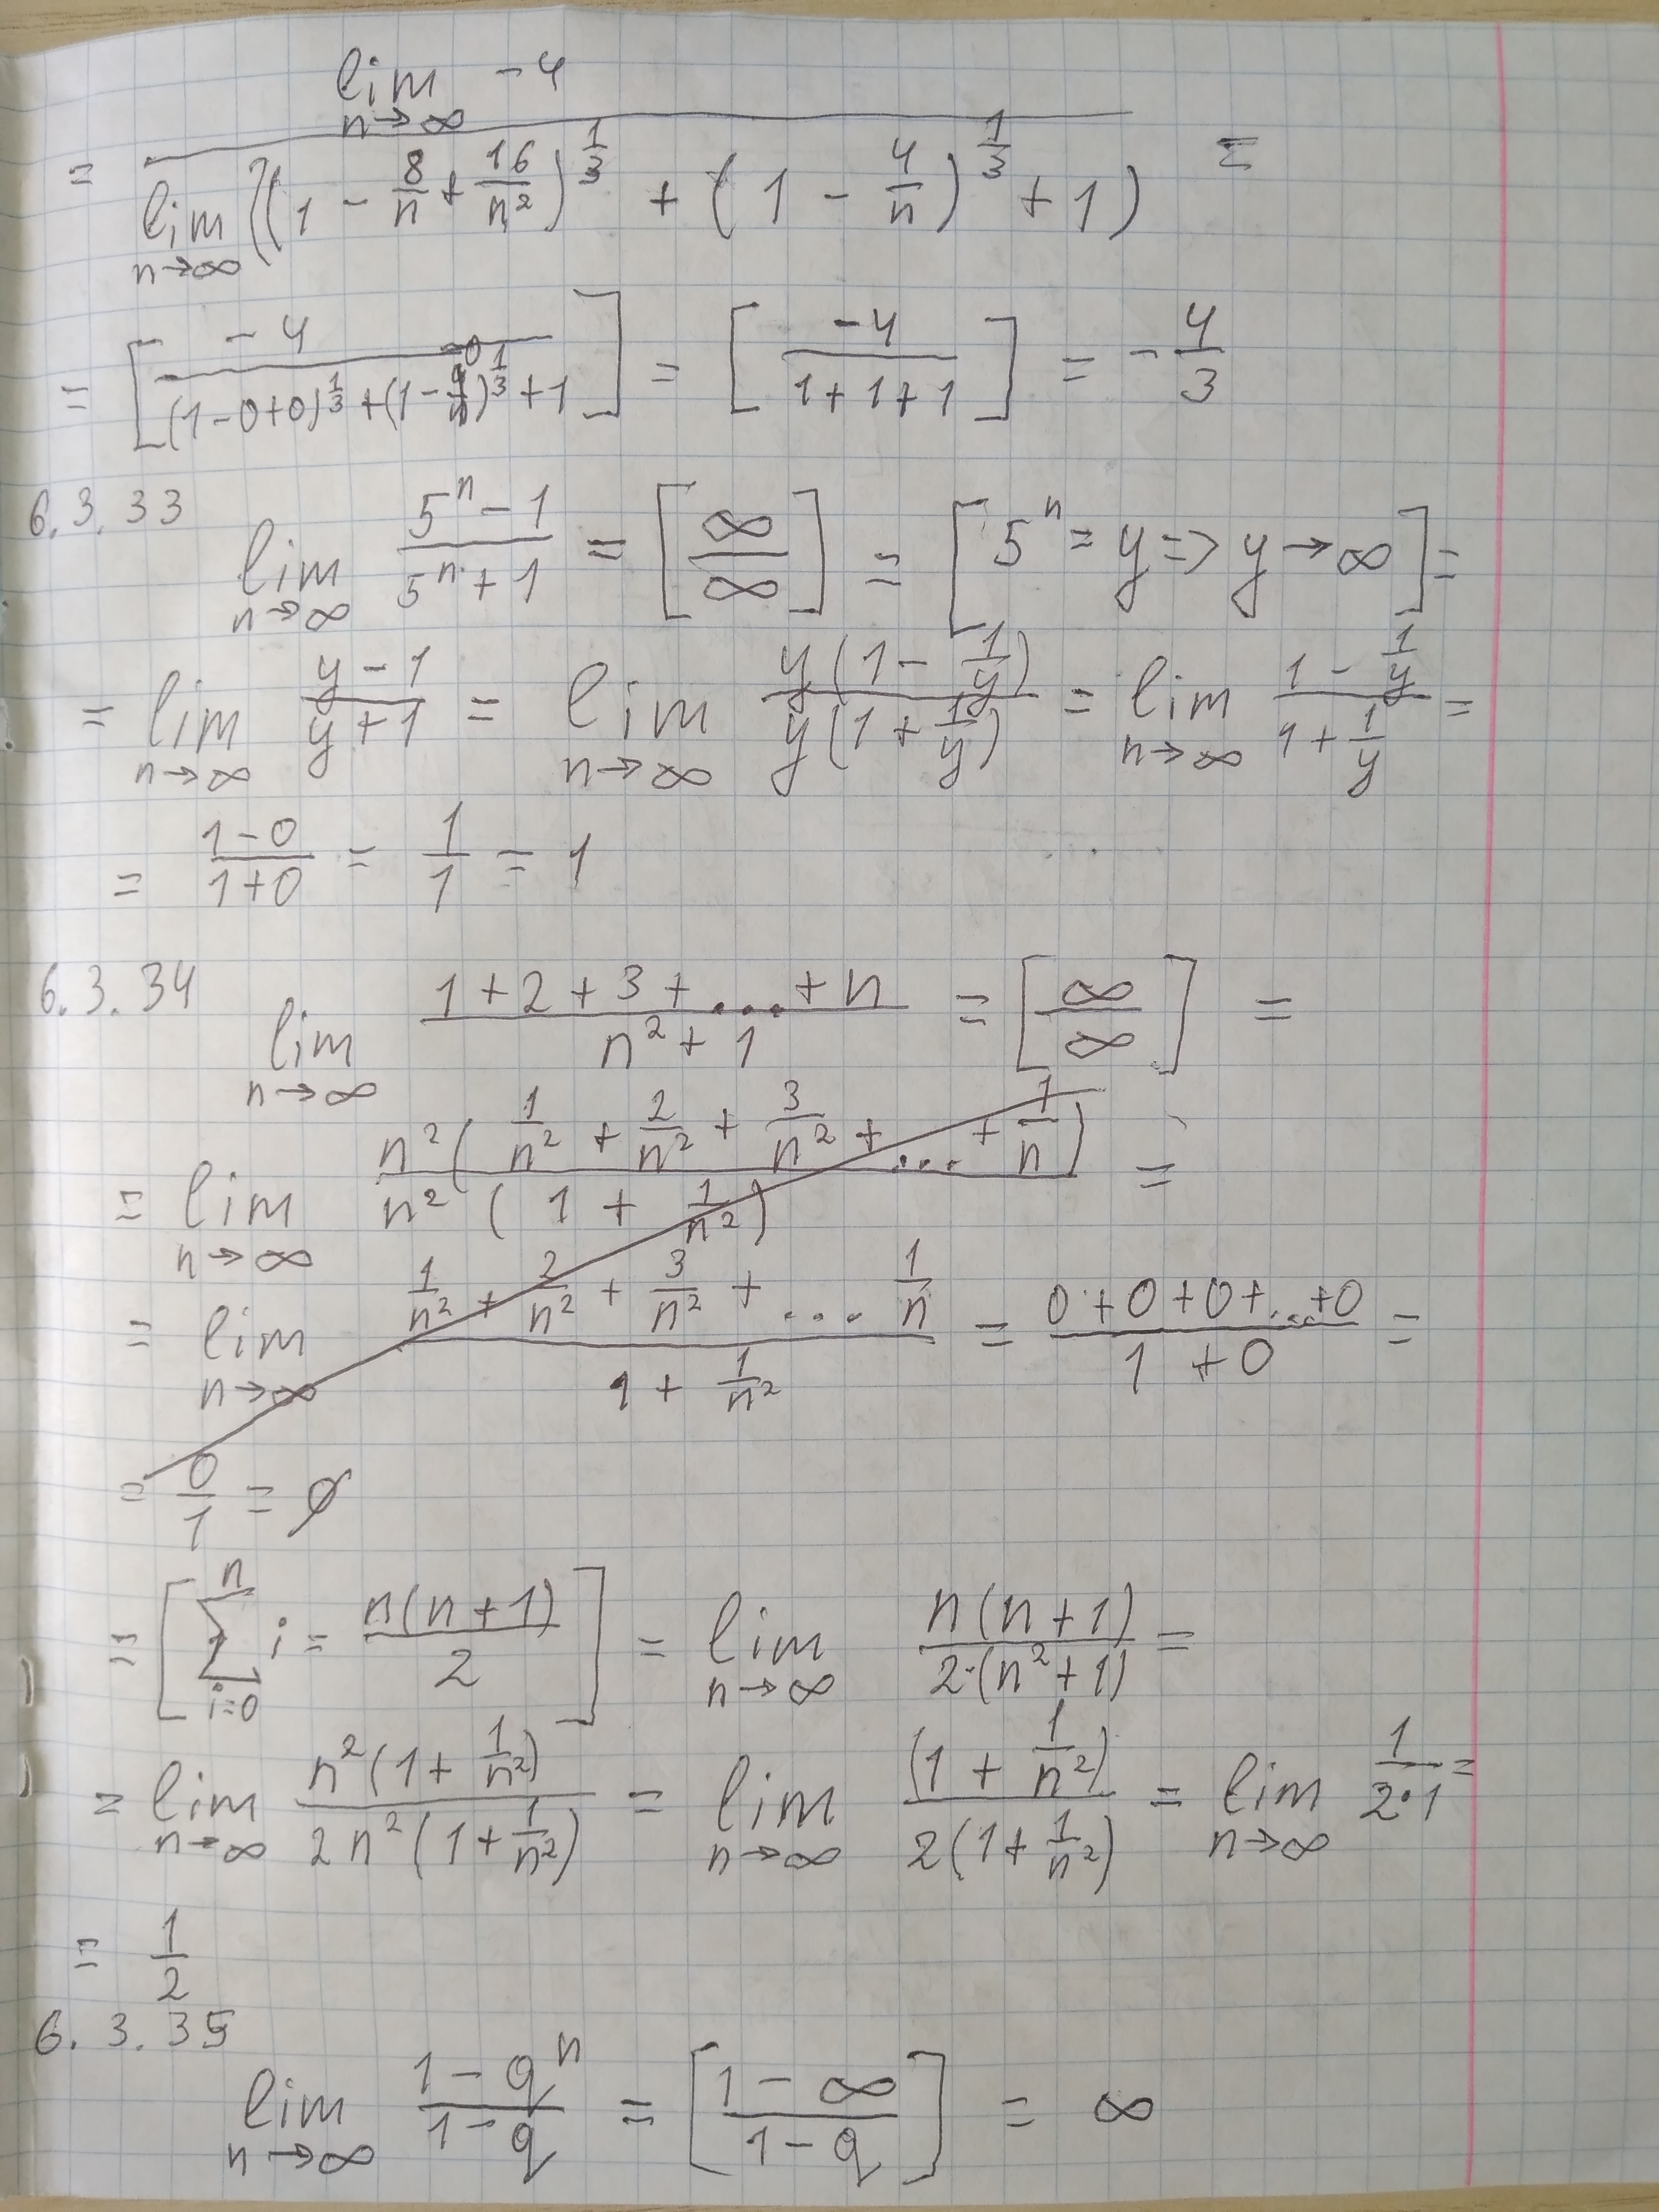 = lim n→∞ -4 / lim n→∞ ((1 - 8/n + 16/n²)^(1/3) + (1 - 4/n)^(1/3) + 1) =
= [-4 / ((1-0+0)^(1/3) + (1-0)^(1/3) + 1)] = [-4 / (1+1+1)] = -4/3
6.3.33 lim n→∞ (5^n - 1)/(5^n + 1) = [∞/∞] = [5^n = y => y→∞] =
= lim n→∞ (y-1)/(y+1) = lim n→∞ y(1 - 1/y)/y(1 + 1/y) = lim n→∞ (1 - 1/y)/(1 + 1/y) =
= (1-0)/(1+0) = 1/1 = 1
6.3.34 lim n→∞ (1+2+3+...+n)/(n²+1) = [∞/∞] =
= lim n→∞ n²(1/n² + 2/n² + 3/n² + ... + 1/n)/n²(1 + 1/n²) =
= lim n→∞ (1/n² + 2/n² + 3/n² + .... 1/n)/(1 + 1/n²) = (0+0+0+...+0)/(1+0) =
= 0/1 = 0
= [∑_{i=0}^{n} i = n(n+1)/2] = lim n→∞ n(n+1)/2·(n²+1) =
= lim n→∞ n²(1 + 1/n²)/2n²(1 + 1/n²) = lim n→∞ (1 + 1/n²)/2(1 + 1/n²) = lim n→∞ 1/2·1 =
= 1/2
6.3.35
lim n→∞ (1-q^n)/(1-q) = [(1-∞)/(1-q)] = ∞